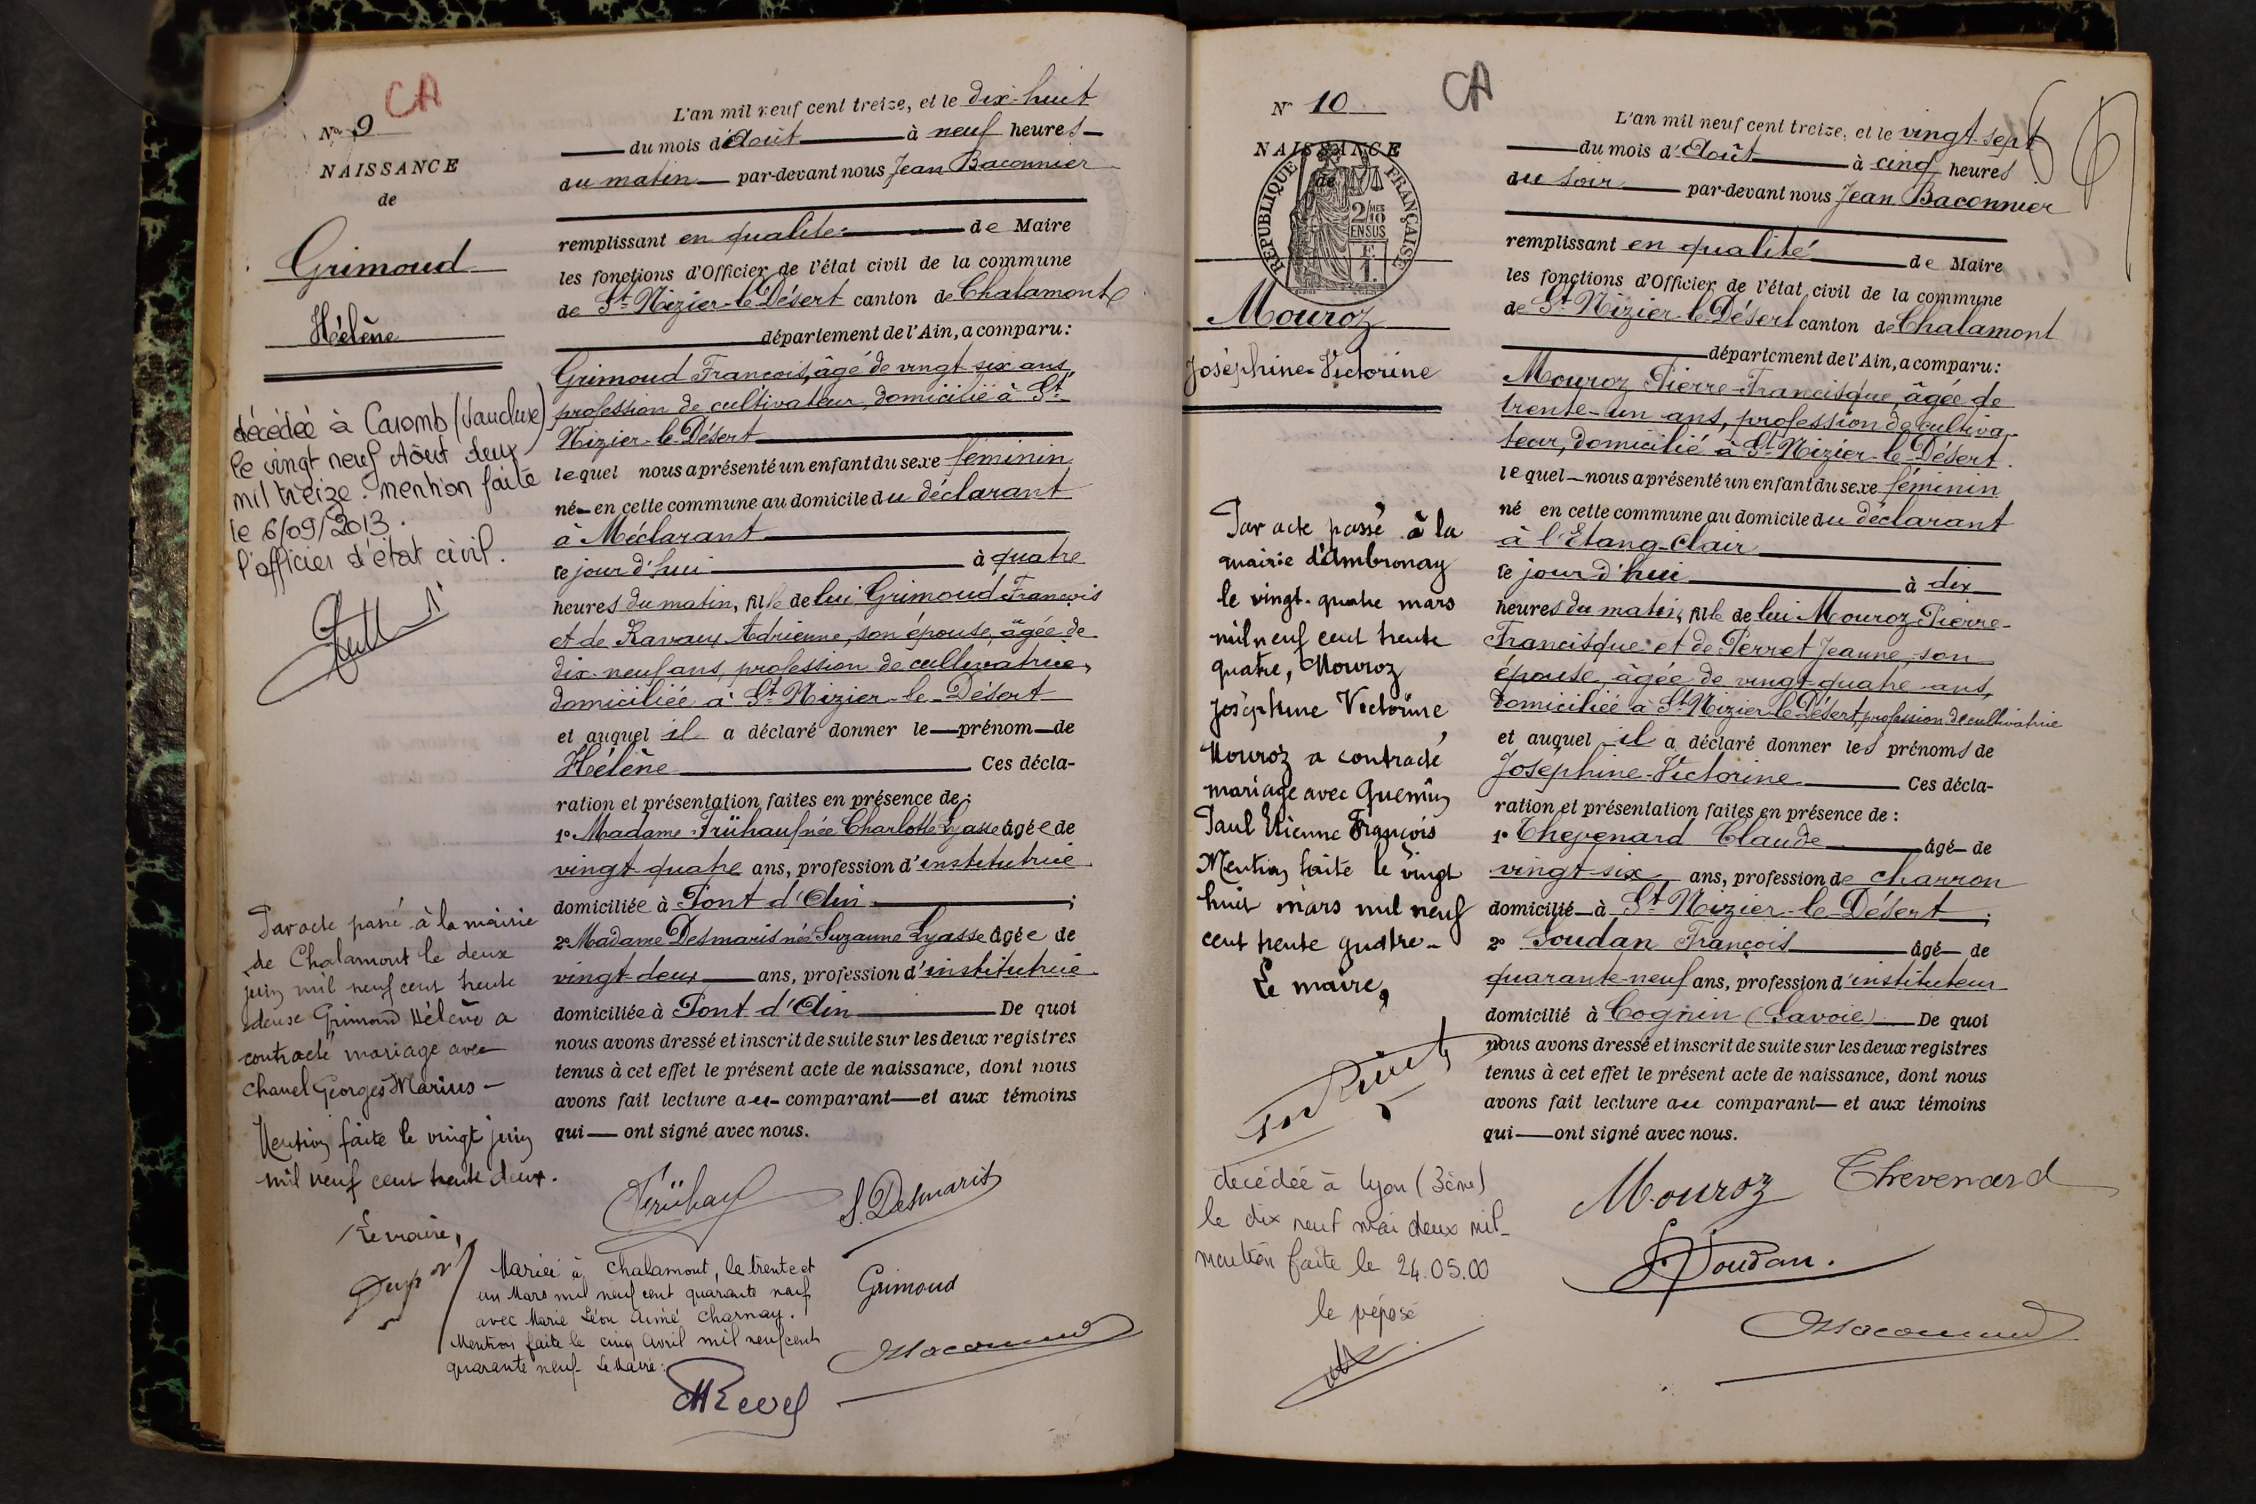 CA
N° 9
NAISSANCE
de
Grimoud
Hélène
décédée à Caromb (Vaucluse)
le vingt neuf Aôut deux
mil treize. mention faite
le 6/09/2013.
l'officier d'état civil.
Par acte passé à la mairie
de Chalamont le deux
juin mil neuf cent trente
deux Grimoud Hélène a
contracté mariage avec
Chanel Georges Marius -
Mention faite le vingt juin
mil neuf cent trente deux.
Le maire,
L'an mil neuf cent treize, et le dix-huit
du mois d'Août à neuf heures
du matin par-devant nous Jean Baconnier
remplissant en qualité de Maire
les fonctions d'Officier de l'état civil de la commune
de St Nizier-le-Désert canton de Chalamont
département de l'Ain, a comparu:
Grimoud François, âgé de vingt-six ans,
profession de cultivateur, domicilié à St
Nizier-le-Désert
lequel nous a présenté un enfant du sexe féminin
né en cette commune au domicile du déclarant
à Méclarant
ce jour d'hui à quatre
heures du matin, fille de lui Grimoud François
et de Ravaux Adrienne, son épouse, âgée de
dix-neuf ans, profession de cultivatrice,
domiciliée à St Nizier-le-Désert
et auquel il a déclaré donner le prénom de
Hélène Ces décla-
ration et présentation faites en présence de:
1° Madame Frühauf née Charlotte Lyasse âgée de
vingt-quatre ans, profession d'institutrice
domiciliée à Pont d'Ain ;
2° Madame Desmaris née Suzanne Lyasse âgée de
vingt-deux ans, profession d'institutrice
domiciliée à Pont d'Ain De quoi
nous avons dressé et inscrit de suite sur les deux registres
tenus à cet effet le présent acte de naissance, dont nous
avons fait lecture au comparant et aux témoins
qui ont signé avec nous.
Frühauf S. Desmaris
Mariée à Chalamont, le trente et
un Mars mil neuf cent quarante neuf
avec Marie Léon Aimé Charnay.
Mention faite le cinq Avril mil neuf cent
quarante neuf - Le Maire:
Grimoud
Baconnier
CA
N° 10
NAISSANCE
de
RÉPUBLIQUE FRANÇAISE
2/10 MES
EN SUS
F.
1
Mouroz
Joséphine-Victorine
Par acte passé à la
mairie d'Ambronay
le vingt-quatre mars
mil neuf cent trente
quatre, Mouroz
Joséphine Victorine,
Mouroz a contracté
mariage avec Quemin
Paul Etienne François
Mention faite le vingt
huit mars mil neuf
cent trente quatre -
Le maire,
decédée à Lyon (3ème)
le dix neuf mai deux mil -
mention faite le 24.05.00
le préposé
L'an mil neuf cent treize, et le vingt-sept
du mois d'Août à cinq heures
du soir par-devant nous Jean Baconnier
remplissant en qualité de Maire
les fonctions d'Officier de l'état civil de la commune
de St Nizier-le-Désert canton de Chalamont
département de l'Ain, a comparu:
Mouroz Pierre-Francisque, âgée de
trente-un ans, profession de cultiva-
teur, domicilié à St Nizier-le-Désert.
lequel nous a présenté un enfant du sexe féminin
né en cette commune au domicile du déclarant
à l'Etang-Clair
ce jour d'hui à dix
heures du matin, fille de lui Mouroz Pierre-
Francisque et de Perret Jeanne, son
épouse, âgée de vingt-quatre ans,
domiciliée à St Nizier-le-Désert, profession de cultivatrice
et auquel il a déclaré donner les prénoms de
Josephine-Victorine Ces décla-
ration et présentation faites en présence de:
1° Chevenard Claude âgé de
vingt-six ans, profession de charron
domicilié à St Nizier-le-Désert ;
2° Soudan François âgé de
quarante-neuf ans, profession d'instituteur
domicilié à Cognin (Savoie) De quoi
nous avons dressé et inscrit de suite sur les deux registres
tenus à cet effet le présent acte de naissance, dont nous
avons fait lecture au comparant et aux témoins
qui ont signé avec nous.
Mouroz Chevenard
F. Soudan.
Baconnier